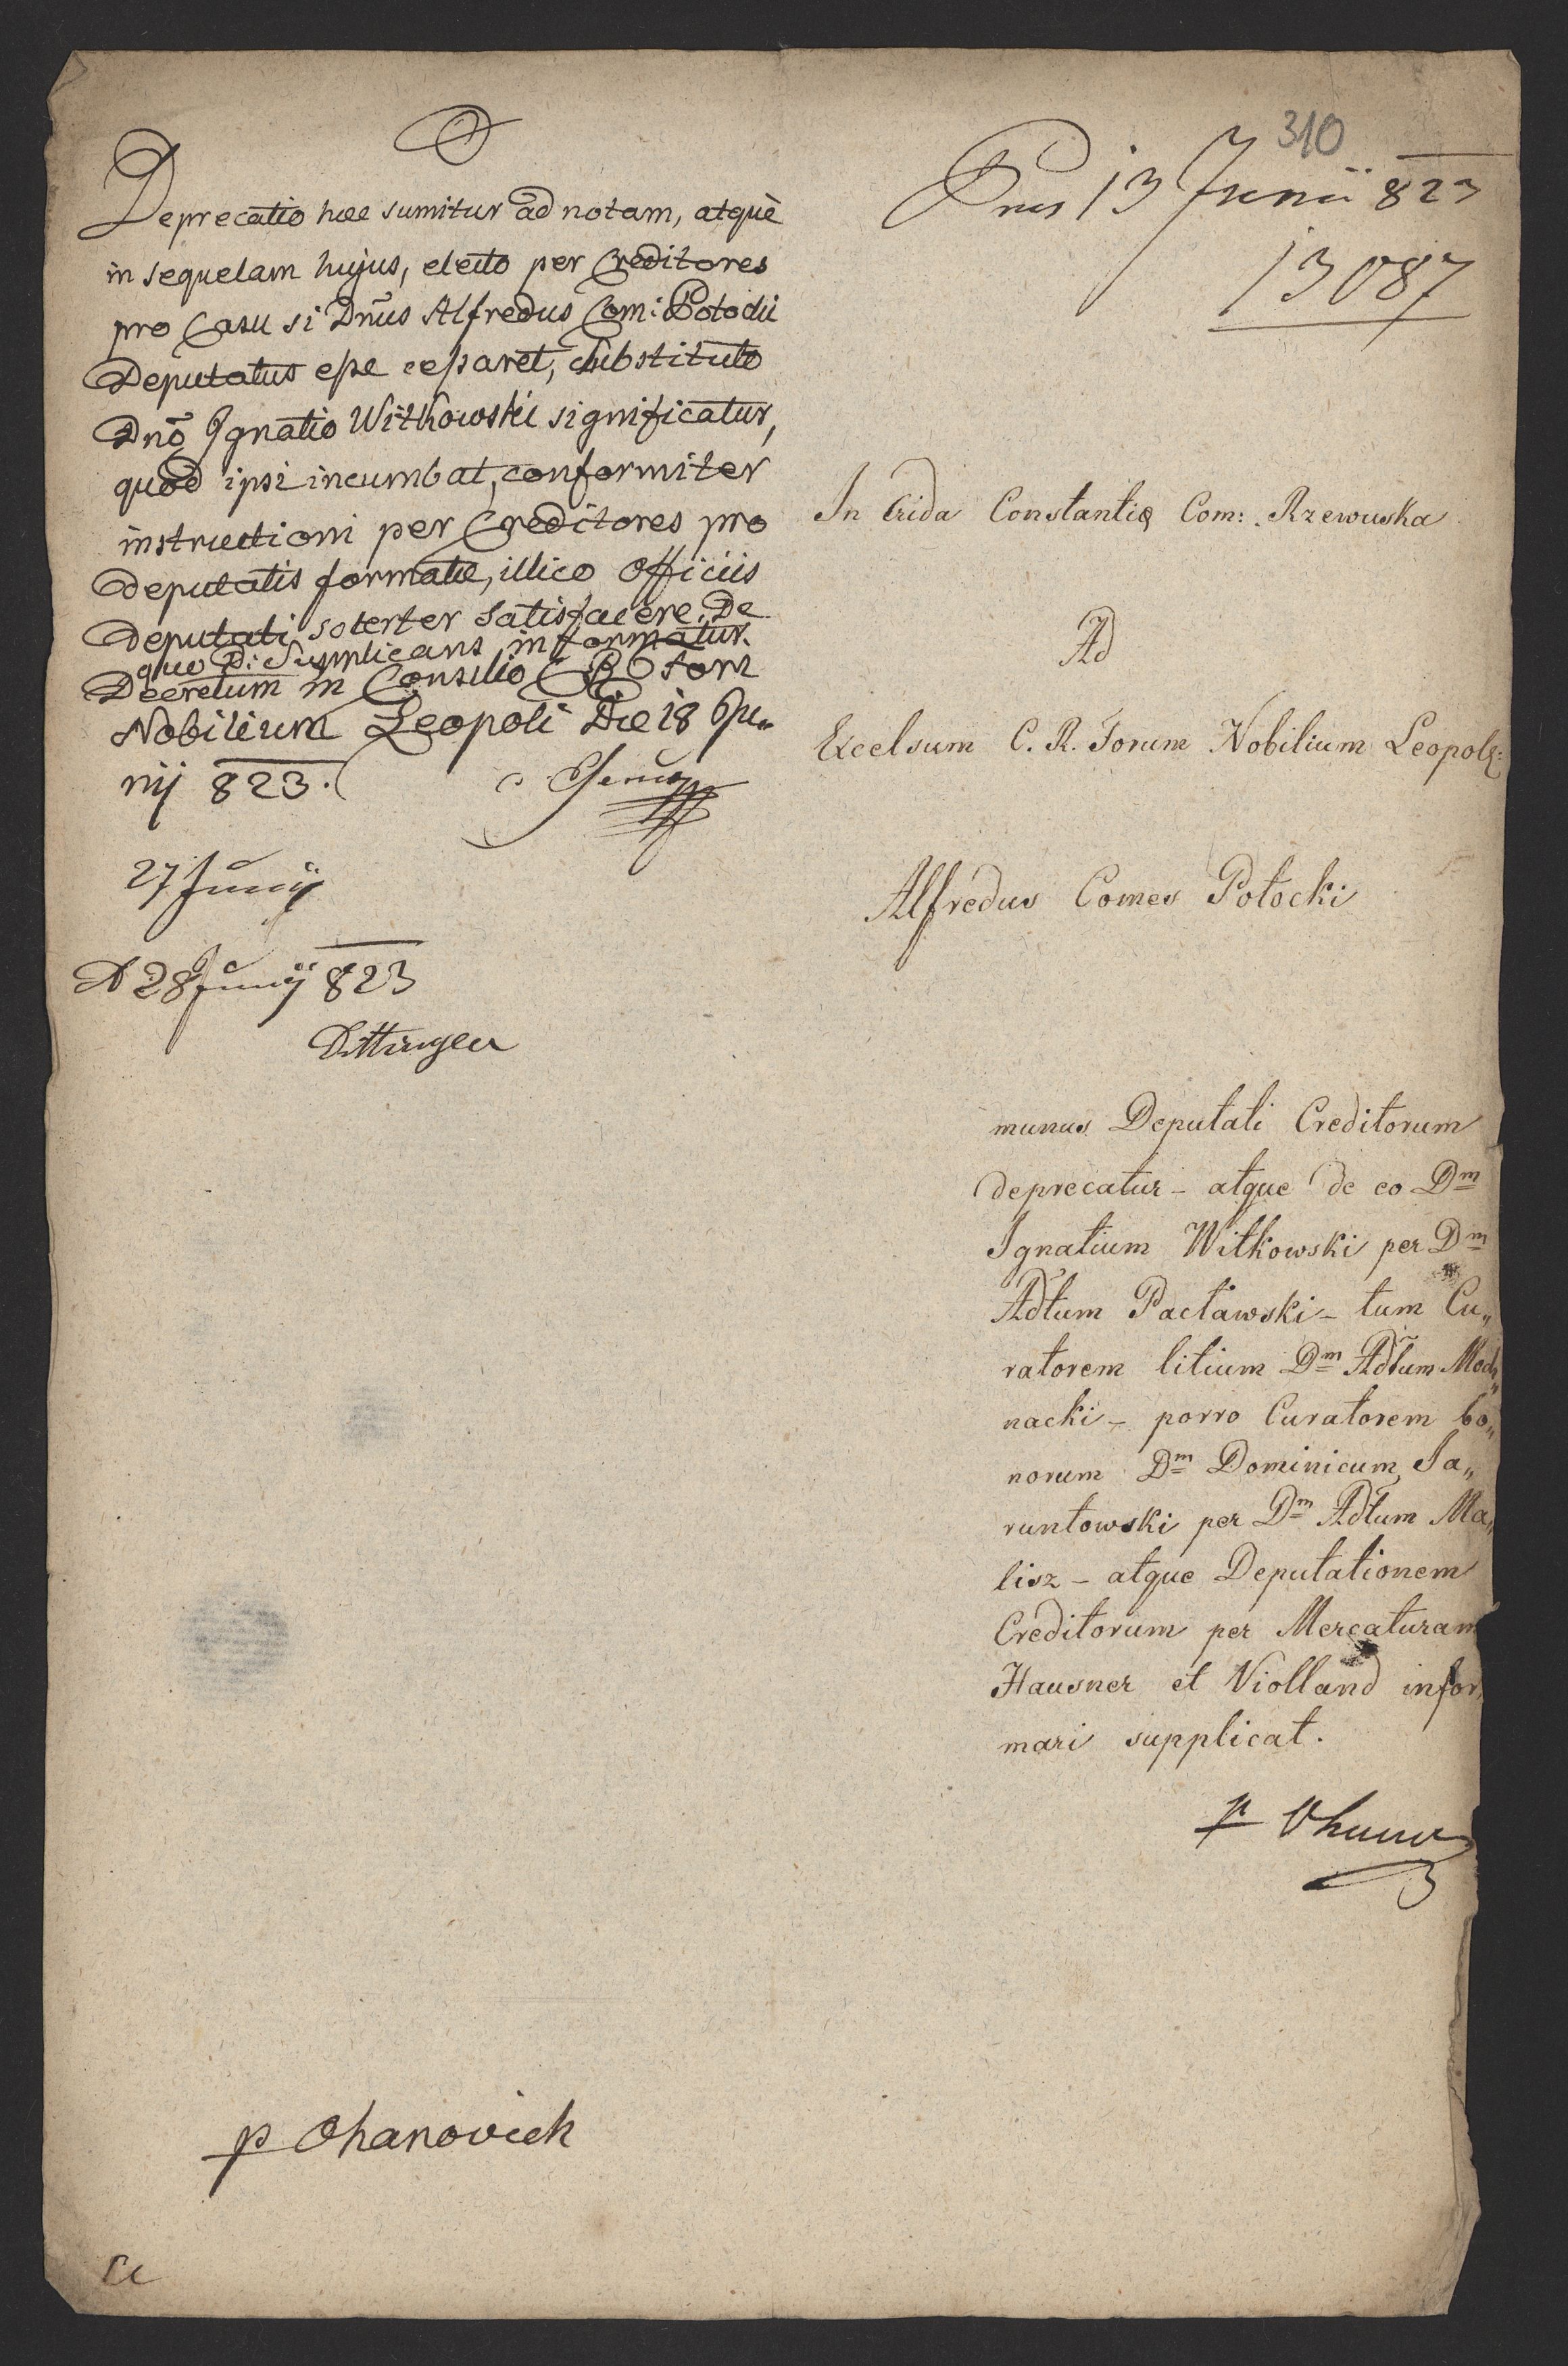 Deprecatio hæc sumitur ad notam, atquè
in sequelam hujus, electo per Creditores
pro Casu si Dnũs Alfredus Com: Potocki
Deputatus eſse ceſsaret, Substituto
Dnõ Ignatio Witkowski significatur,
quod ipsi incumbat, conformiter
instructioni per Creditores pro
Deputatis formatæ, illico officiis
Deputati solerter satisfacere. De
quo D: Supplicans informatur.
Decretum in Consilio C. R. Fori
Nobilium Leopoli Die 18 Ju„
nij 823.
27 Junij
28 Junij 823
Dittinger
p Ohanovich
310
Prus 13 Junii 823
13087
In Crida Constantiæ Com: Rzewuska
Ad
Excelsum C. R. Forum Nobilium Leopolę:
Alfredus Comes Potocki
munus Deputati Creditorum
deprecatur – atque de eo Dm
Ignatium Witkowski per Dm
Adtum Pacławski – tum Cu„
ratorem litium Dm Adtum Moch„
nacki – porro Curatorem bo„
norum Dm Dominicum Ja„
runtowski per Dm Adtum Ma„
lisz – atque Deputationem
Creditorum per Mercaturam
Hausner et Violland infor„
mari supplicat.